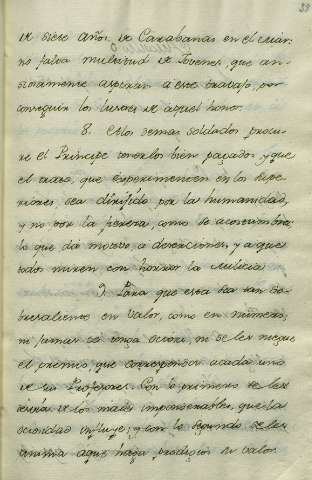 33
de siete años. de Carabanas en el cuar
no falta multitud de Jovenes, que an-
siosamente aspiran a este travajo, por
conseguir los lustres de aquel honor.
8. A los demas soldados procu-
re el Principe tenerlos bien pagados y que
el trato, que experimenten en los supe-
riores, sea dirigido por la humanidad,
y no por la fiereza, como se acostumbra:
lo que dá motivo a deserciones, y a que
todos miren con horror la Milicia
9. Para que esta sea tan so-
bresaliente en valor, como en número,
ni jamas se tenga ociosa, ni se les niegue
el premio, que corresponde acada uno
de sus Profesores. Con lo primero se les
de los males imponderables, que la
ociosidad influye; y con lo segundo se les
anima aque haga prodigios su valor.